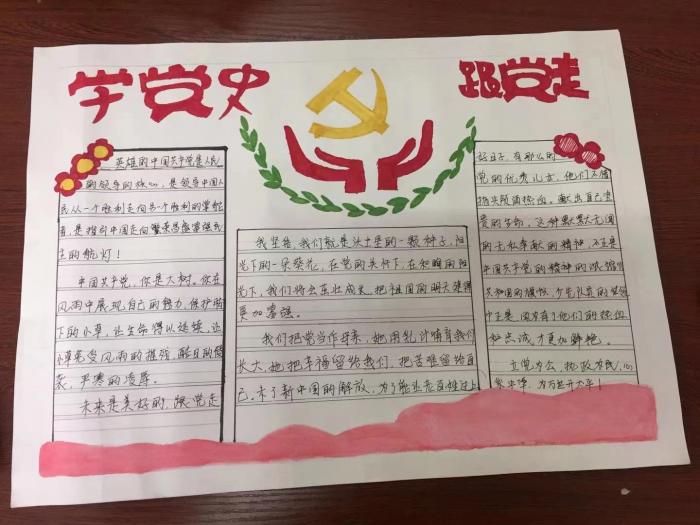 学党史
跟党走
英雄的中国共产党是人民
的领导的核心，是领导中国人
民从一个胜利走向另一个胜利的掌舵
者，是指引中国走向繁荣昌盛富强民
主的航灯！
中国共产党，你是大树。你在
风雨中展现自己的魅力，保护脚
下的小草，让生命得以延续，让
小草免受风雨的摧残，酷日的侵
袭，严寒的凌辱。
未来是美好的，跟党走
我坚信，我们就是沃土里的一颗种子，阳
光下的一朵葵花，在党的关怀下，在和暖的阳
光下，我们将会茁壮成长，把祖国的明天建得
更加富强。
我们把党当作母亲，她用乳汁哺育我们
长大，她把幸福留给我们，把苦难留给自
己。为了新中国的解放，为了能让老百姓过上
好日子，有那么的
党的优秀儿女，他们不惜
抛头颅洒热血。献出自己宝
贵的生命，这种默默无闻
的无私奉献的精神，不正是
中国共产党的精神的浓缩
共和国的旗帜，
中正是因为有了他们的热血
和忠诚才更加鲜艳。
立党为公，执政为民，心
系中华，为万世开太平！